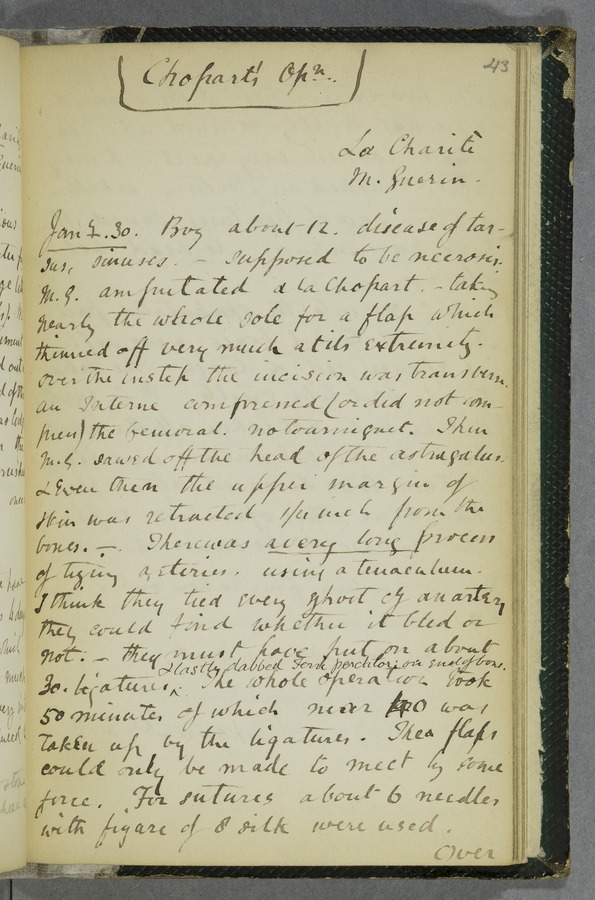 43
Chopart's Opn.
La Charité
M. Guerin.
Jany. 30. Boy about 12. disease of tar-
sus, sinuses. - supposed to be necrosis.
M.G. amputated a la Chopart. - taking
nearly the whole sole for a flap which
thinned off very much at its extremity.
over the instep the incision was transverse.
an Interne compressed (or did not com-
press) the femoral. no tourniquet. Then
M.G. sawed off the head of the astragalus.
& Even then the upper margin of
skin was retracted inch from the
bones. - . There was a very long process
of tying arteries. using a tenaculum.
I think they tied every ghost of an artery
they could find whether it bled or
not. - they must have put on about
& lastly dabbed some perchlor: on end of bone.
30. ligatures. The whole operation took
50 minutes of which near 40 was
taken up by the ligatures. The flaps
could only be made to meet by some
force. For sutures about 6 needles
with figure of 8 silk were used.
Over